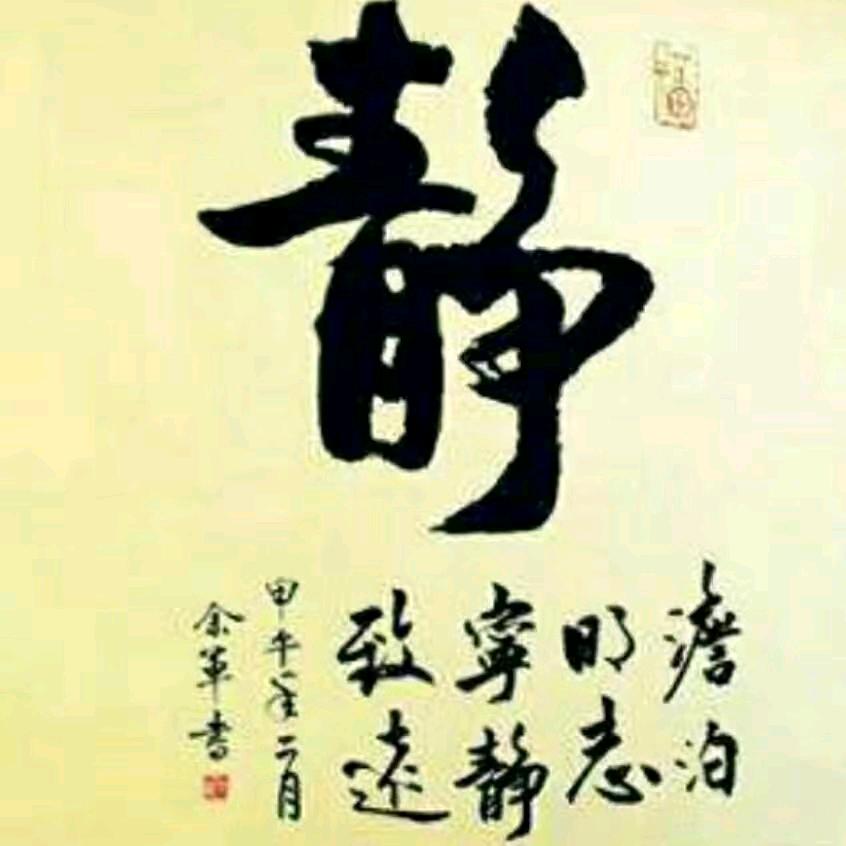 静
澹泊
明志
寧静
致遠
甲午年二月
余草書